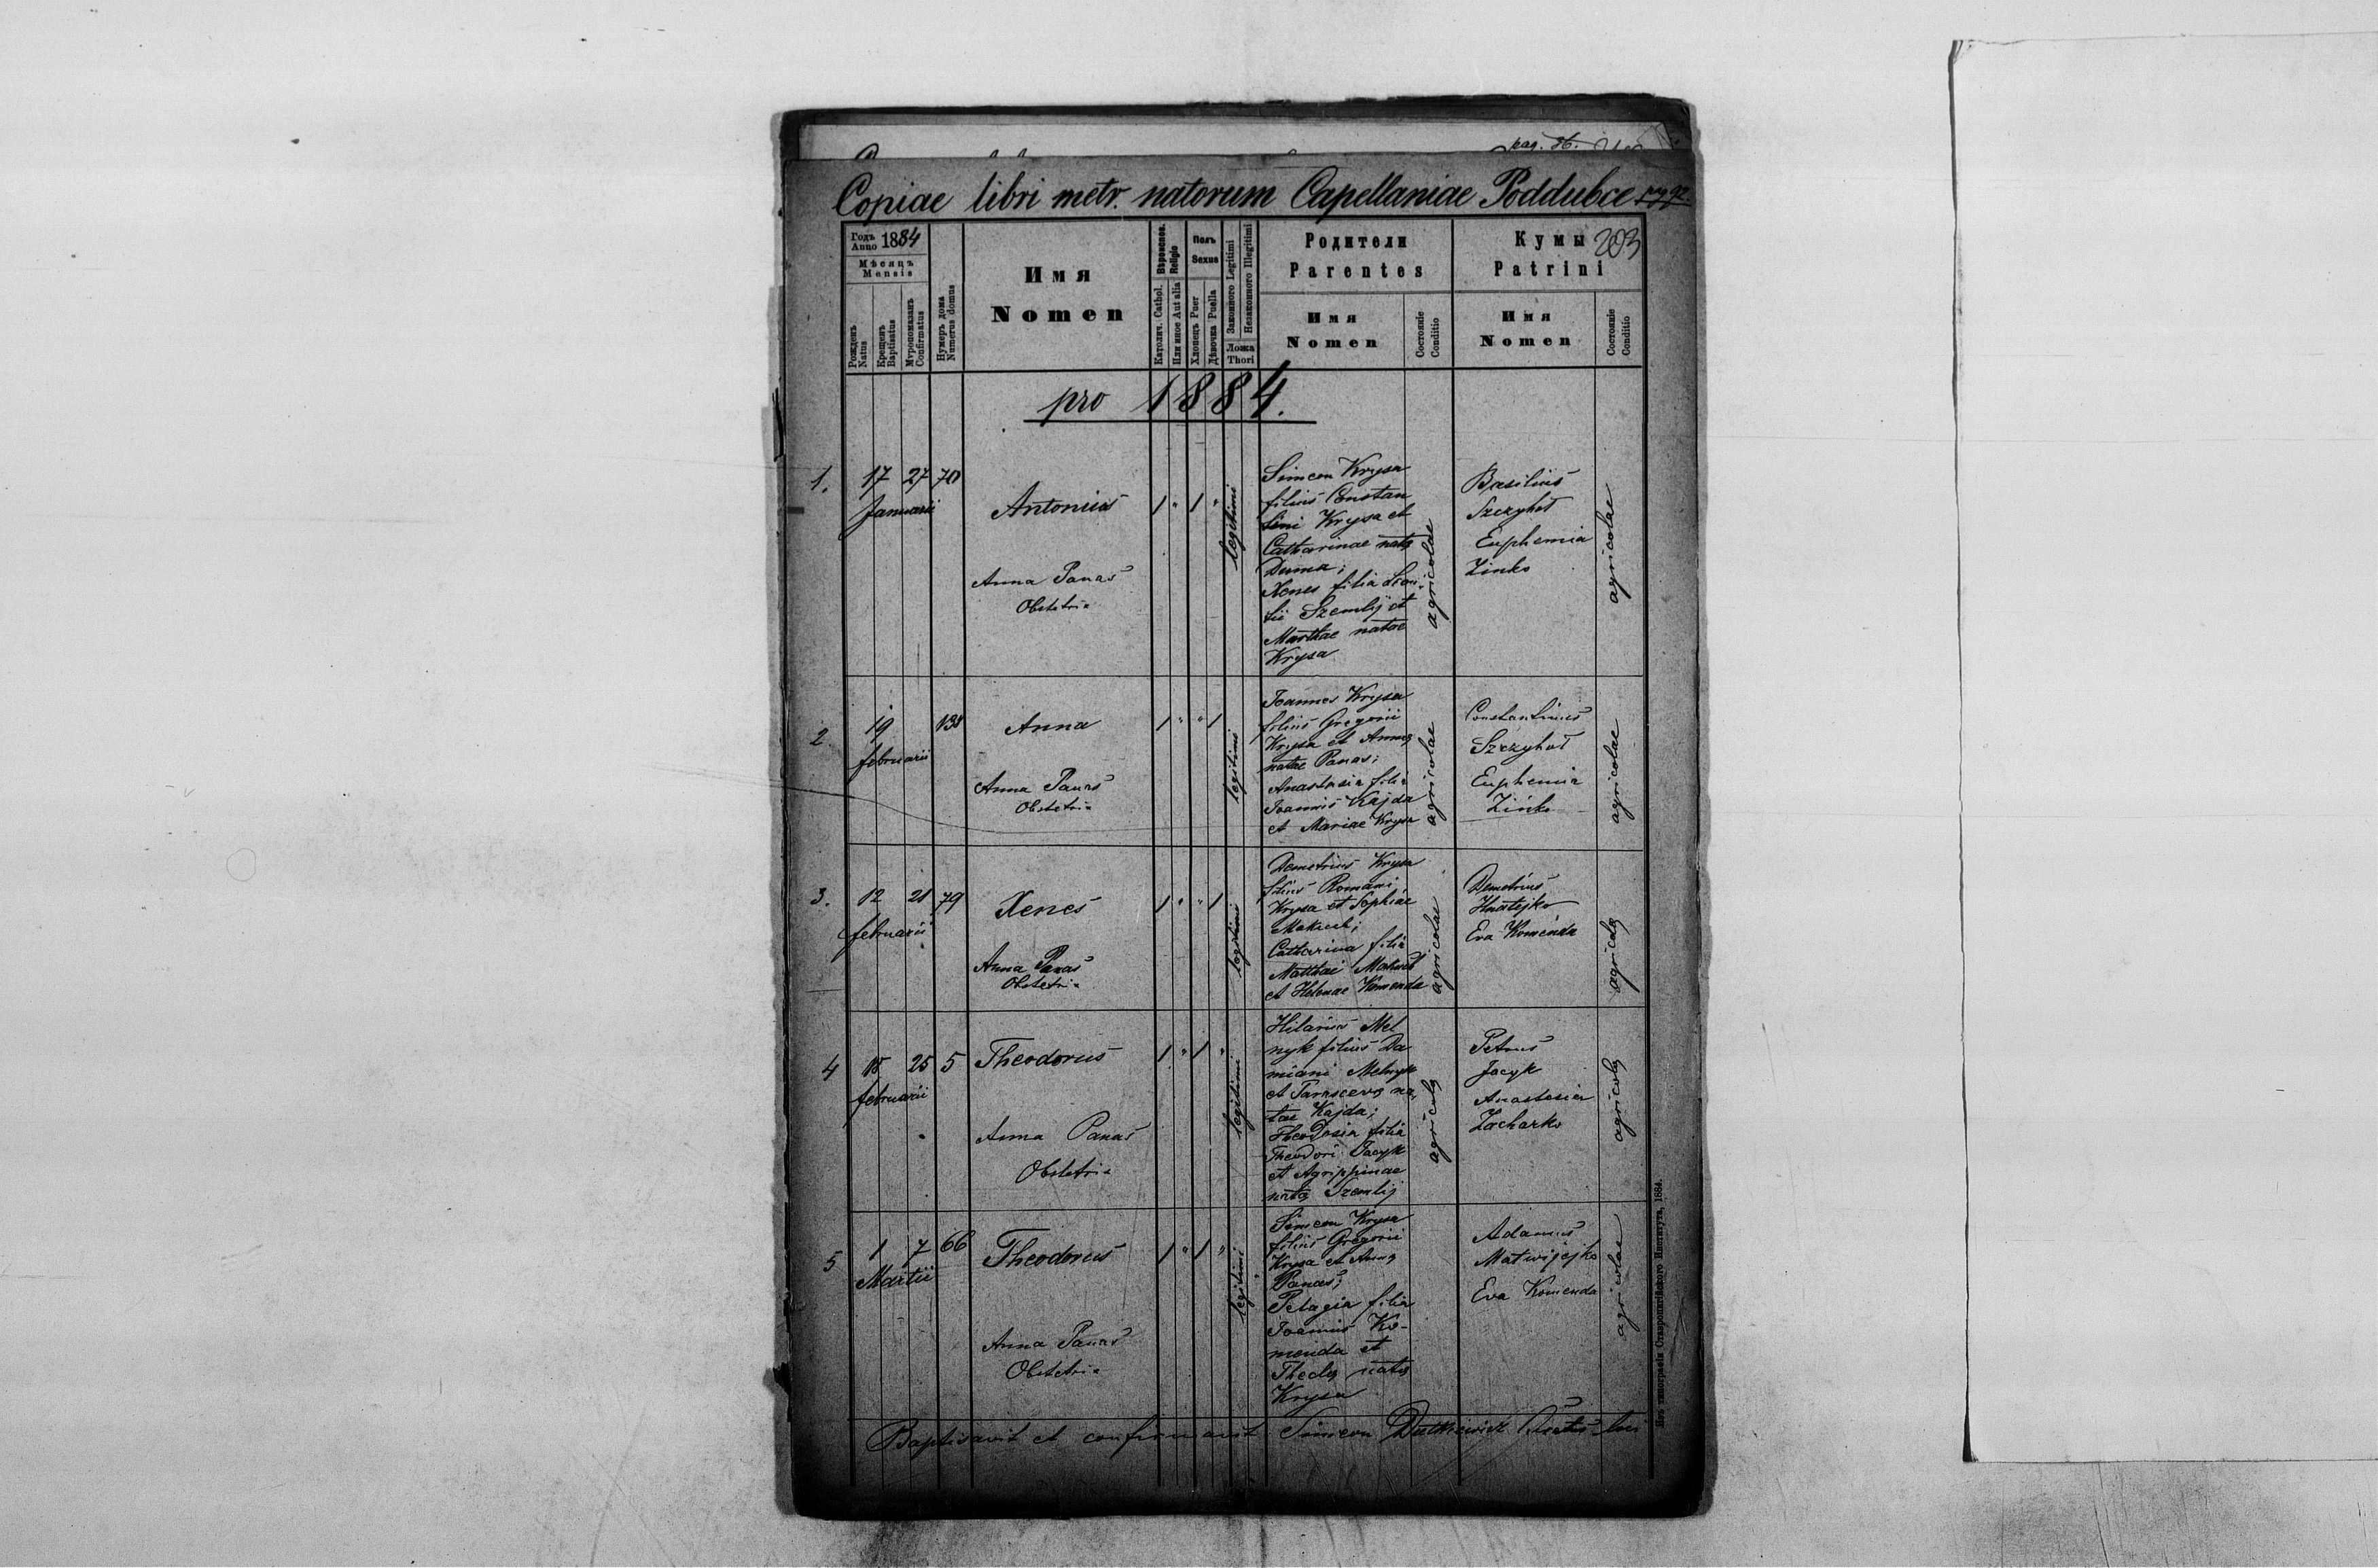 pag. 36.
Copiae libri metr. natorum Capellaniae Poddubce pag 92.
203
Годъ Anno 1884
Мѣсяцъ Mensis
Рожденъ Natus
Крещенъ Baptisatus
Мѵропомазанъ Confirmatus
Нумеръ дома Numerus domus
Имя
Nomen
Вѣроиспов. Religio
Католич. Cathol.
Или иное Aut alia
Полъ
Sexus
Хлопецъ Puer
Дѣвочка Puella
Законного Legitimi
Незаконного Illegitimi
Ложа
Thori
Родители
Parentes
Имя
Nomen
Состояніе
Conditio
Кумы
Patrini
Имя
Nomen
Состояніе
Conditio
pro 1884.
1.
17 27 70
Januarii
Antonius
Anna Panas
Obstetrix
1 " 1 "
legitimi
Simeon Krysa
filius Constan
tini Krysa et
Catharinae natae
Duma;
Xenes filia
Szemlij et
Marthae natae
Krysa
agricolae
Basilius
Szczyhoł
Euphemia
Zinko
agricolae
2
19 138
februarii
Anna
Anna Panas
Obstetrix
1 " " 1
legitimi
Joannes Krysa
filius Gregorii
Krysa et Annae
natae Panas;
Anastasia filia
Joannis Kajda
et Mariae Krysa
agricolae
Constantinus
Szczyhoł
Euphemia
Zinko
agricolae
3.
12 21 79
februarii
Xenes
Anna Panas
Obstetrix
1 " " 1
legitimi
Demetrius Krysa
filius Romani
Krysa et Sophiae
Catharina filia
Matthaei
et Helenae Komenda
agricolae
Demetrius
Hnatejko
Eva Komenda
agricolae
4
18 25 5
februarii
Theodorus
Anna Panas
Obstetrix
1 " 1 "
legitimi
Hilarius Mel
nyk filius Da
miani Melnyk
et Parascevae na
tae Kajda;
Theodosia filia
Theodori Jacyk
et Agrippinae
natae Szemlij
agricolae
Petrus
Jacyk
Anastasia
Zacharko
agricolae
5
1 7 66
Martii
Theodorus
Anna Panas
Obstetrix
1 " 1 "
legitimi
Simeon Krysa
filius Gregorii
Krysa et Annae
Panas;
Pelagia filia
Joannis Ko-
menda et
Theclae natae
Krysa
Adamus
Matwijejko
Eva Komenda
agricolae
Baptisavit et confirmavit Simeon Dutkiewicz
Изъ типографіи Ставропигійского Института, 1884.